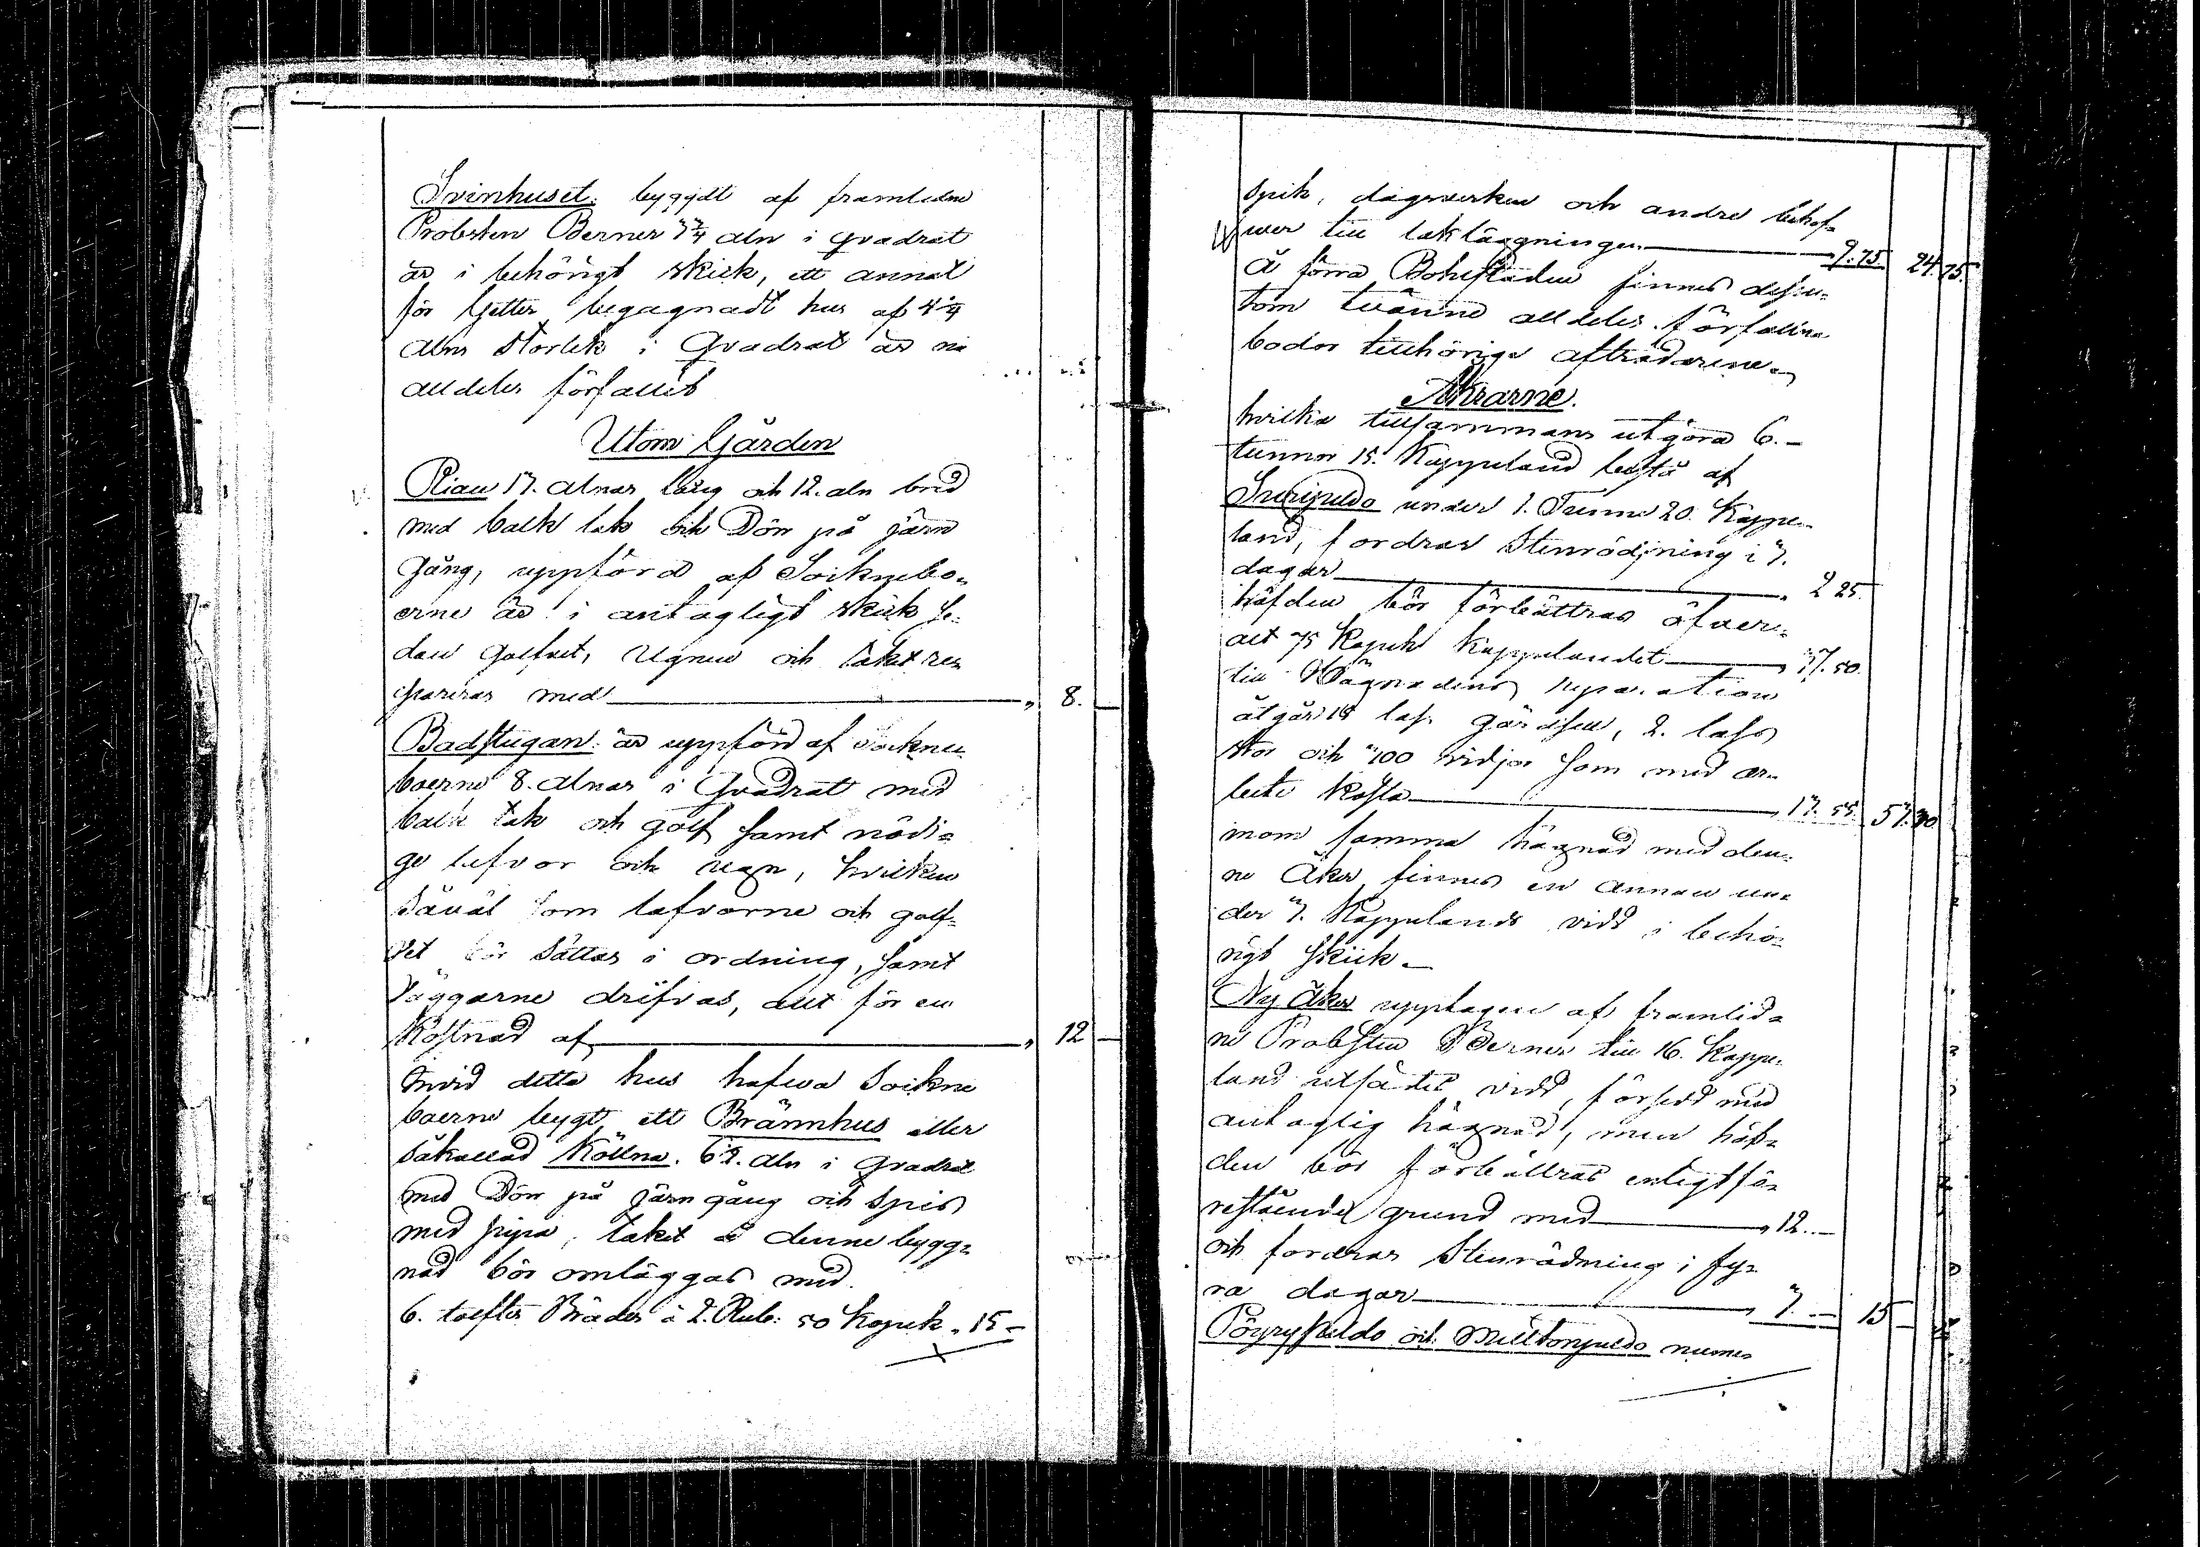 Svinhuset. byggdt af framledne
Probsten Berner 3 3/4 aln i qvadrat
är i behörigt skick, ett annat
för Getter begagnadt hus af 4 1/4
alns storlek i Qvadrat är nu
alldeles förfallit
Utom Gården
Rian 17. alnar lång och 12. aln bred
med balk tak och Dörr på järn
gång, uppförd af Socknebo-
erne är i antagligt skick se-
dan Golfvet, Ugnen och taket re-
pareras med " 8. —
Badstugan. är uppförd af Sockne
boerne 8. alnar i Qvadratt med
balk tak och golf samt nödi-
ge lafvor och ugn, hvilken
såväl som lafvorne och golf-
vet bör sättas i ordning, samt
Väggarne drifvas, allt för en
Kostnad af " 12 —
Invid detta hus hafva Sockne
boerne bygt ett Brännhus eller
såkallad Kölna. 6 1/2. aln i qvadrat
med Dörr på järn gång och spis
med pipa, taket å denne bygg-
nad bör omläggas med
6. tolfter Bräder à 2. Rub: 50 Kopek " 15 —
spik, dagsverken och andre behof-
wer till takläggningen 9. 75. 24. 75.
Å förra Bohlstaden finnes dessu-
tom tvänne alldeles förfallne
bodor tillhörige afträdarene.
Åkrarne.
hvilka tillsammans utgöra 6.
tunnor 15. Kappeland bestå af
under 1. Tunne 20. Kappe-
land, fordras Stenrödjning i 3.
dagar " 2 25.
häfden bör förbättras öfver-
alt 75 Kopek Kappelandet " 37. 50.
till Hägnadens reparation
åtgår 18 lass gärdsel, 2. lass
stör och 400 vidjor som med ar-
bete kosta " 17. 55. 57. 30
inom samma hägnad med den-
ne Åker finnes en annan un-
der 3. Kappelands vidd i behö-
rigt skick.
Ny Åker upptagen af framlid-
ne Probsten Berner till 16. Kappe-
land utsädes vidd, försedd med
antaglig hägnad, men häf-
den bör förbättras enligt fö-
restående grund med " 12. —
och fordras Stenrödning i fy-
ra dagar " 3. — 15 —
Pöyrypeldo och Myllkonpeldo